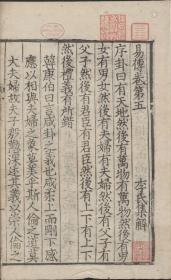 易傳卷第五
李氏集解
序卦曰有天地然後有萬物有萬物然後有男
女有男女然後有夫婦有夫婦然後有父子有
父子然後有君臣有君臣然後有上下有上下
然後禮義有所錯
韓康伯曰言咸卦之義也咸柔上而剛下感
應以相與夫婦之象莫美乎斯人倫之道莫
大夫婦故夫子殷勤深述其義以崇人倫之